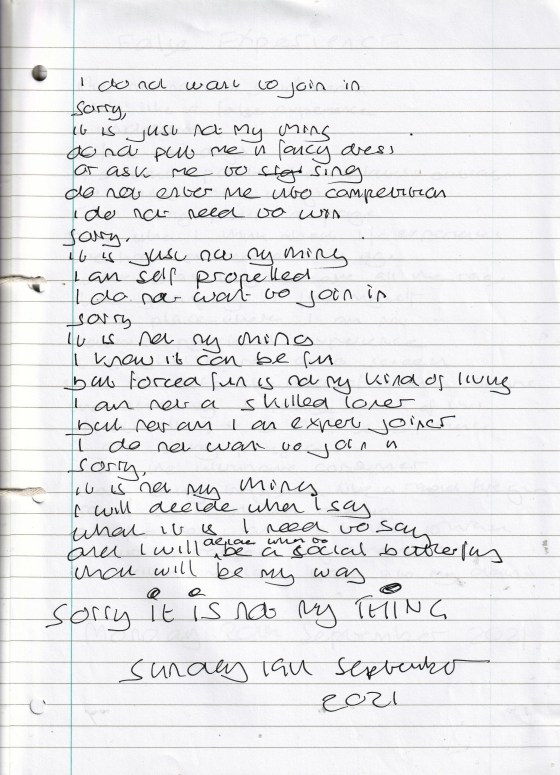 I do not want to join in
Sorry,
it is just not my thing
do not put me in fancy dress
or ask me to sing
do not enter me into competition
I do not need to win
Sorry.
it is just not my thing
I am self propelled
I do not want to join in
sorry
it is not my thing
I know it can be fun
but forced fun is not my kind of living
I am not a skilled loner
but nor am I an expert joiner
I do not want to join in
Sorry,
it is not my thing
I will decide when I say
what it is I need to say
and I will decide when to be a social butterfly
that will be my way
Sorry it is not my THING
Sunday 19th September
2021